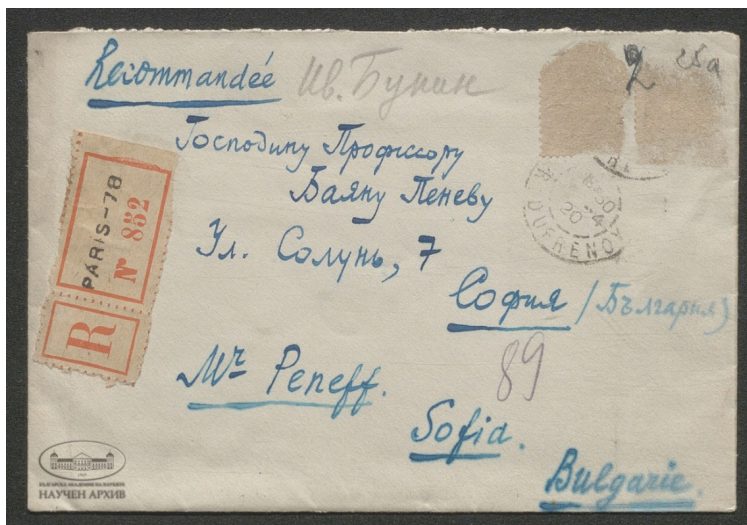 Recommandée Ив. Бунин
2 25a
Господину Профессору
Баяну Пеневу
Ул. Солунь, 7
София (България)
PARIS-78
N° 852
R
DUFRENOY
20
89
Mr Peneff.
Sofia.
Bulgarie.
БЪЛГАРСКА АКАДЕМИЯ НА НАУКИТЕ
НАУЧЕН АРХИВ